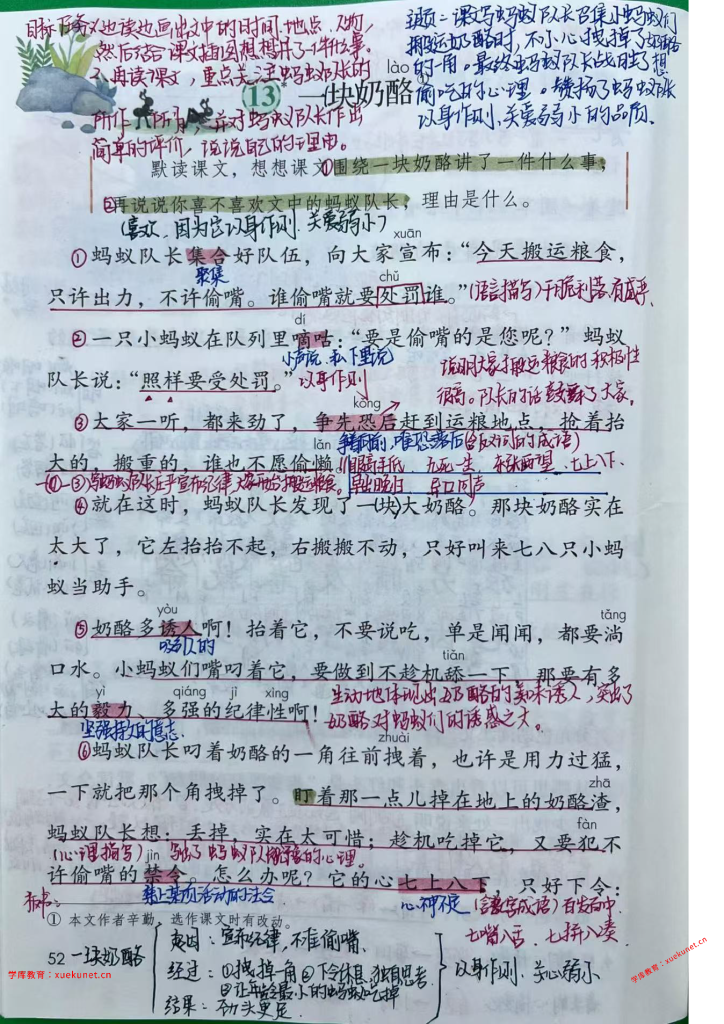 目标
然后结合课文插图想想
再读课文，重点关注蚂蚁队长的
所作所为，并对蚂蚁队长作出
简单的评价，说说自己的理由。
读后：课文写蚂蚁队长召集小蚂蚁们
搬运奶酪时，不小心拽掉了奶酪
的一角。最终蚂蚁队长战胜了想
偷吃的心理。赞扬了蚂蚁队长
以身作则、关爱弱小的品质。
lào
13 一块奶酪①
默读课文，想想课文①围绕一块奶酪讲了一件什么事；
②再说说你喜不喜欢文中的蚂蚁队长；理由是什么。
(喜欢，因为它以身作则、关爱弱小)
xuān
①蚂蚁队长集合好队伍，向大家宣布：“今天搬运粮食，
聚集
chǔ
只许出力，不许偷嘴。谁偷嘴就要处罚谁。”
(语言描写)干脆利落
dí
②一只小蚂蚁在队列里嘀咕：“要是偷嘴的是您呢？”蚂蚁
小声说、私下里说
说明大家搬运粮食的积极性
队长说：“照样要受处罚。”
以身作则
很高。队长的话鼓舞了大家。
kǒng
③大家一听，都来劲了，争先恐后赶到运粮地点，抢着抬
lǎn
争着向前，唯恐落后(含反义词的成语)
大的，搬重的，谁也不愿偷懒。
眼高手低、九死一生、东张西望、七上八下、
早出晚归、异口同声
④就在这时，蚂蚁队长发现了一(块)大奶酪。那块奶酪实在
太大了，它左抬抬不起，右搬搬不动，只好叫来七八只小蚂
蚁当助手。
yòu
tǎng
⑤奶酪多诱人啊！抬着它，不要说吃，单是闻闻，都要淌
吸引人的
tiǎn
口水。小蚂蚁们嘴叼着它，要做到不趁机舔一下，那要有多
yì qiáng jì xìng
大的毅力、多强的纪律性啊！
生动地体现出奶酪的美味诱人，突出了
奶酪对蚂蚁们的诱惑之大。
坚强持久的意志
zhuài
⑥蚂蚁队长叼着奶酪的一角往前拽着，也许是用力过猛，
zhā
一下就把那个角拽掉了。盯着那一点儿掉在地上的奶酪渣，
fàn
蚂蚁队长想：丢掉，实在太可惜；趁机吃掉它，又要犯不
(心理描写)
jìn
许偷嘴的禁令。怎么办呢？它的心七上八下，只好下令：
禁止某项活动的法令
心神不定
(含数字成语)百发百中、
七嘴八舌、七拼八凑
板书：
① 本文作者辛勤，选作课文时有改动。
52 一块奶酪
起因：宣布纪律，不准偷嘴。
经过：①拽掉一角②下令休息，独自思考
③让年龄最小的蚂蚁吃掉
结果：劲头更足
以身作则、关心弱小
学库教育：xuekunet.cn
学库教育：xuekunet.cn